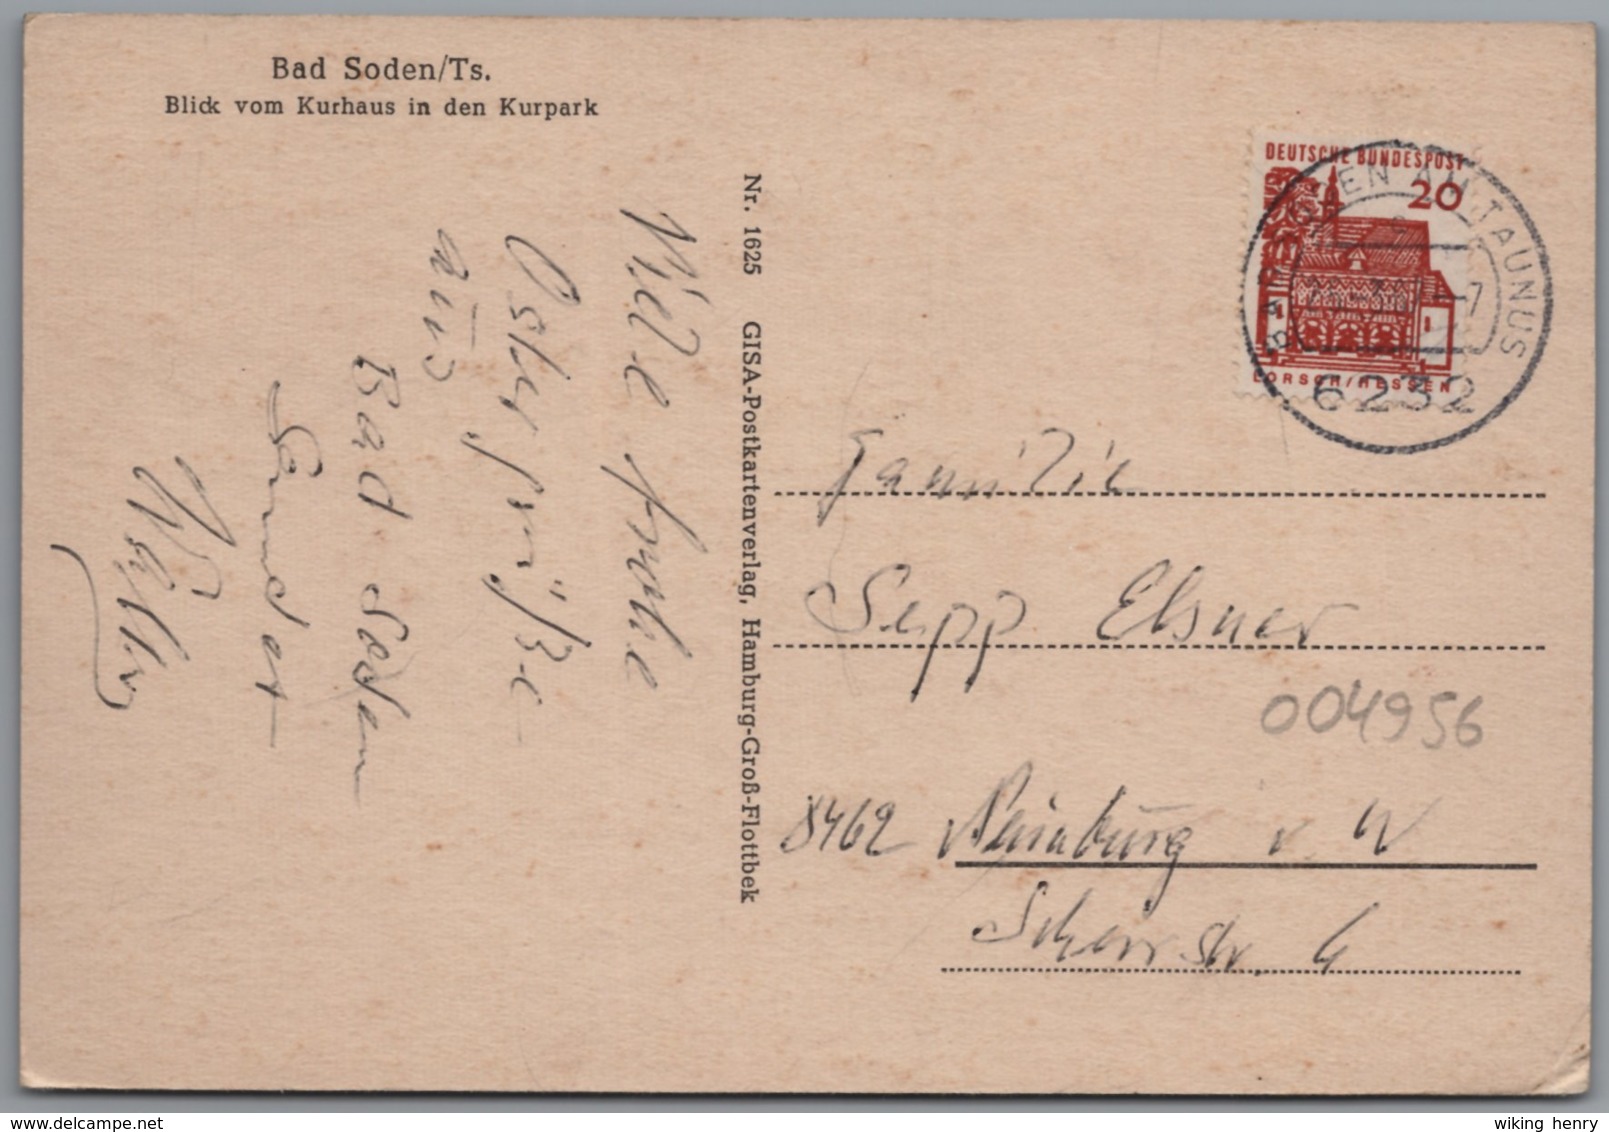 Bad Soden/Ts.
Blick vom Kurhaus in den Kurpark
Nr. 1625 GISA-Postkartenverlag, Hamburg-Groß-Flottbek
Viele frohe
Ostergrüße
aus
Bad Soden
sendet
Willy
DEUTSCHE BUNDESPOST
20
LORSCH/HESSEN
BAD SODEN AM TAUNUS
6232
Familie
Sepp Elsner
004956
8462 Neunburg v W
str. 4
delcampe.net
wiking henry